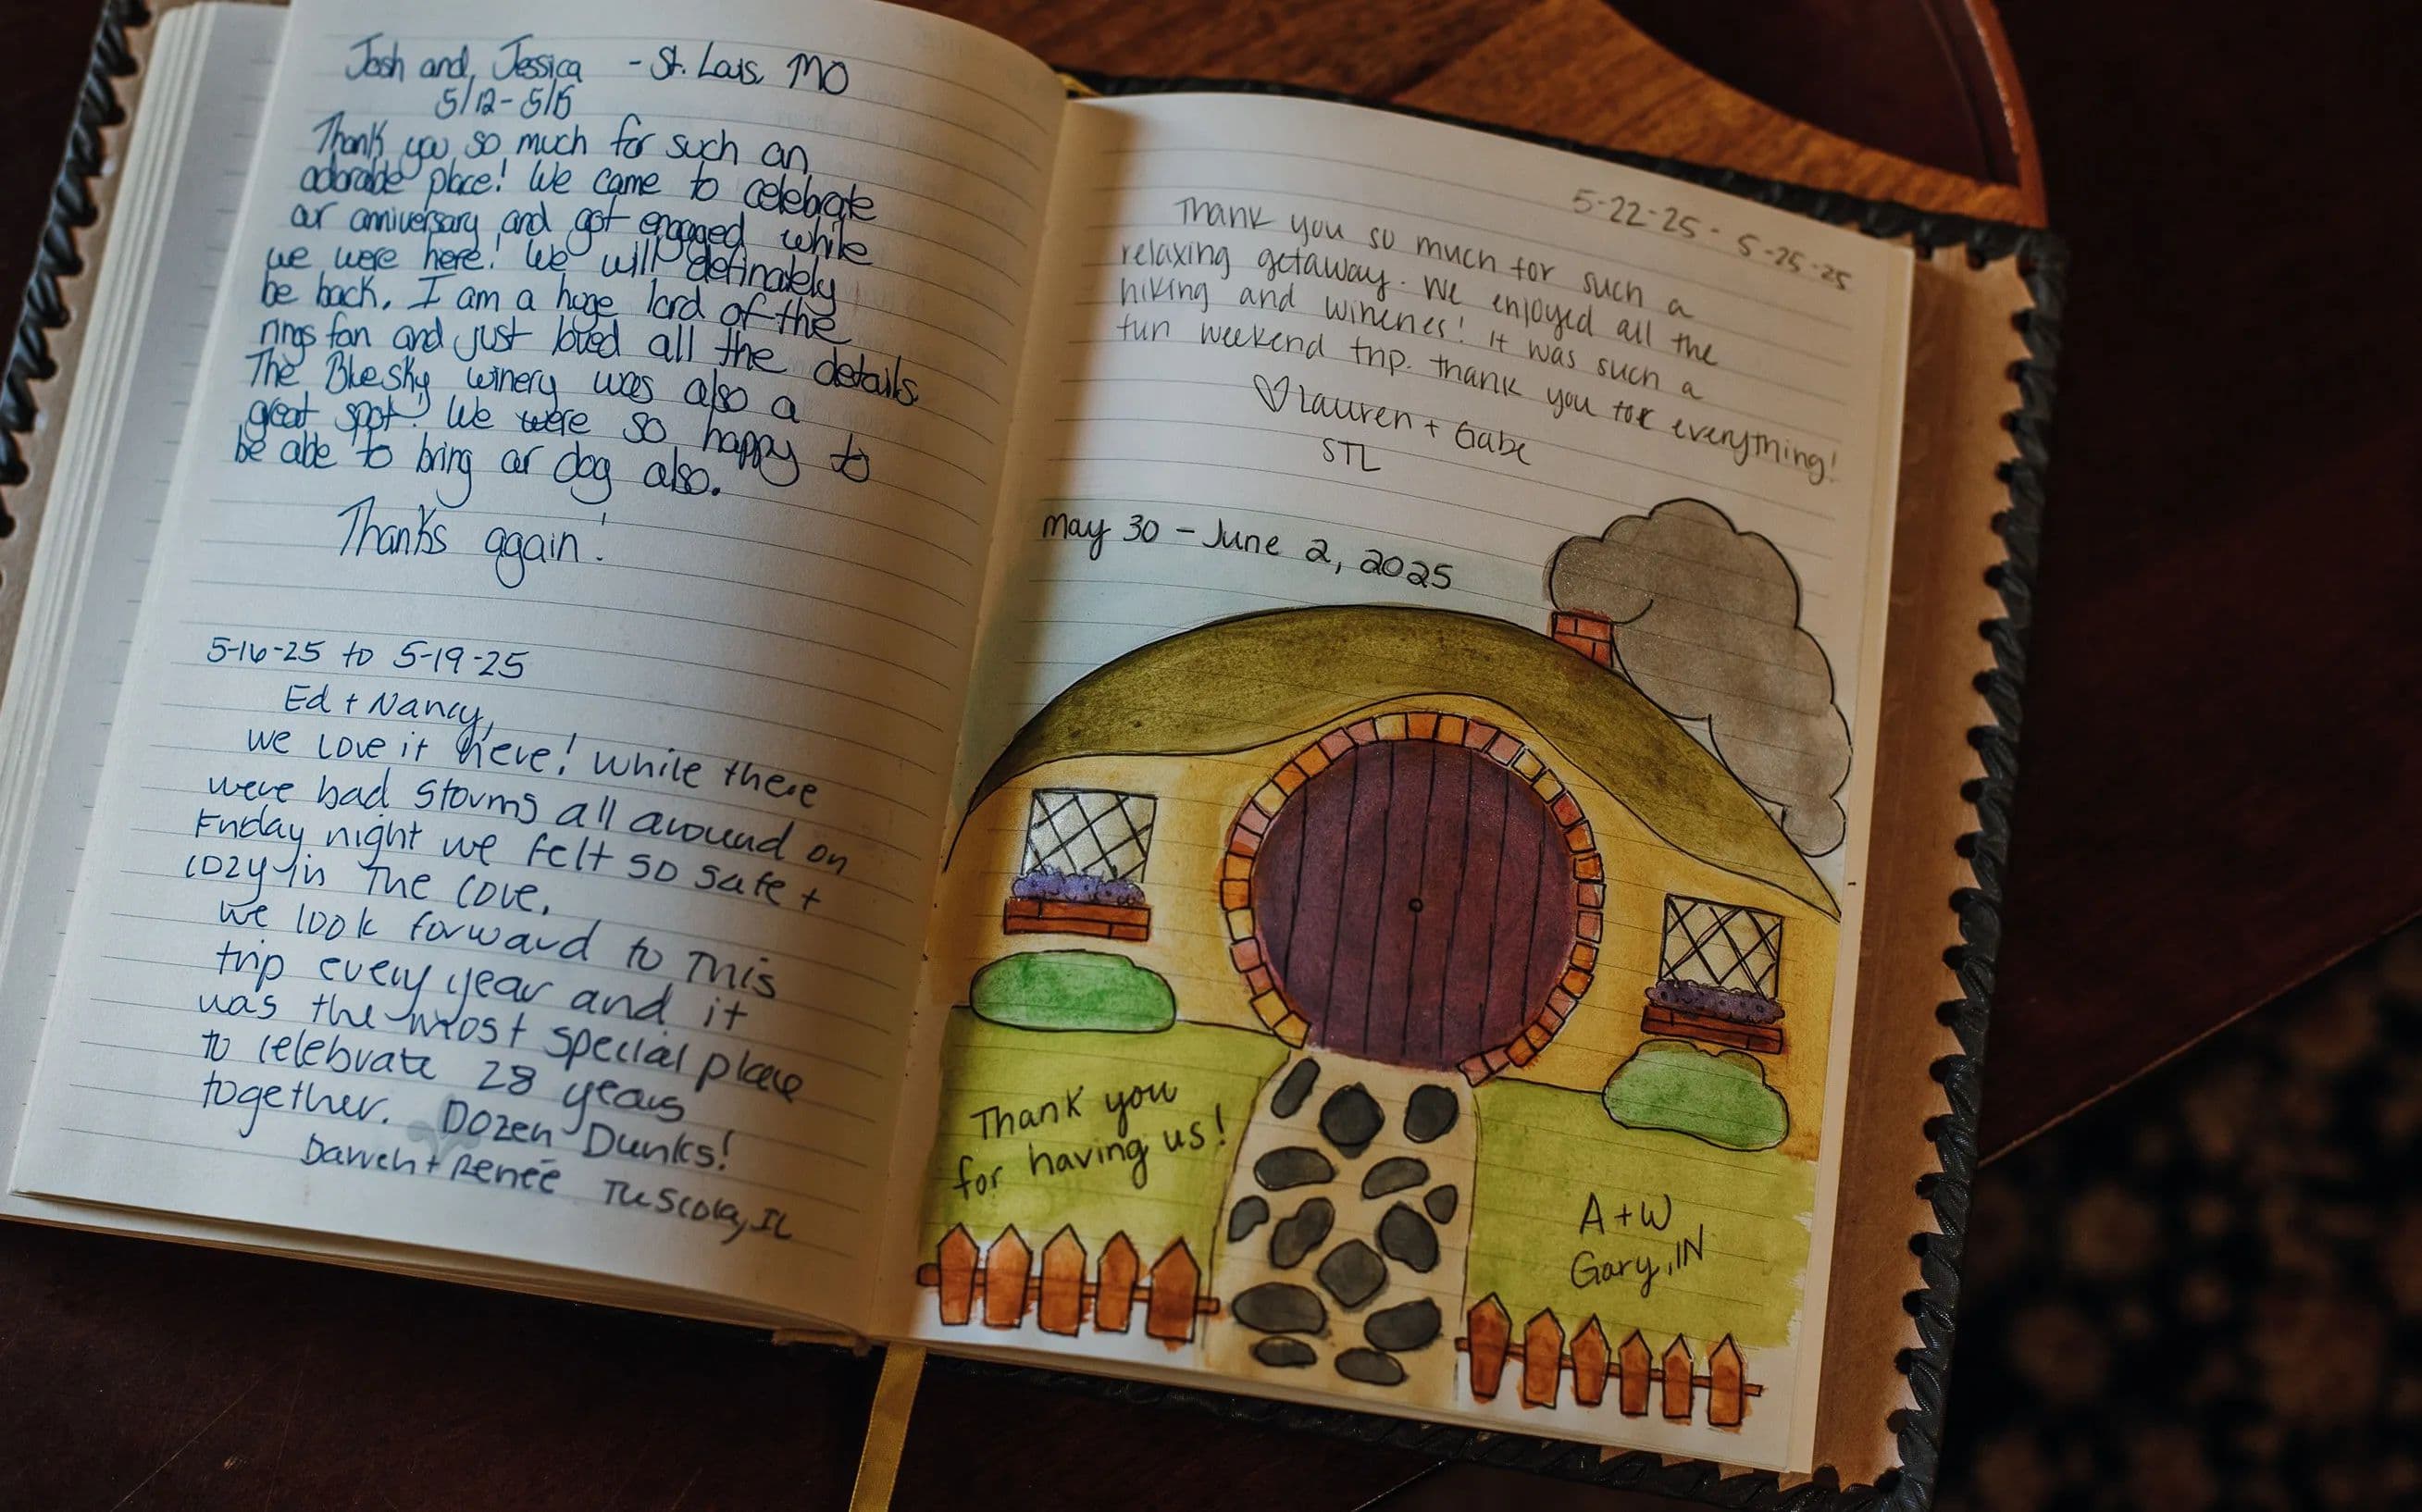 Josh and Jessica - St. Louis, MO
5/12 - 5/15
Thank you so much for such an
adorable place! We came to celebrate
our anniversary and got engaged while
we were here! We will definately
be back. I am a huge lord of the
rings fan and just loved all the details.
The Blue Sky winery was also a
great spot! We were so happy to
be able to bring our dog also.
Thanks again!
5-16-25 to 5-19-25
Ed + Nancy,
we love it here! While there
were bad storms all around on
Friday night we felt so safe +
cozy in The Cove.
We look forward to this
trip every year and it
was the most special place
to celebrate 28 years
together. Dozen Dunks!
Darren + Renée Tuscola, IL
5-22-25 - 5-25-25
Thank you so much for such a
relaxing getaway. We enjoyed all the
hiking and wineries! It was such a
fun weekend trip. Thank you for everything!
♡ Lauren + Gabe
STL
May 30 - June 2, 2025
Thank you
for having us!
A + W
Gary, IN